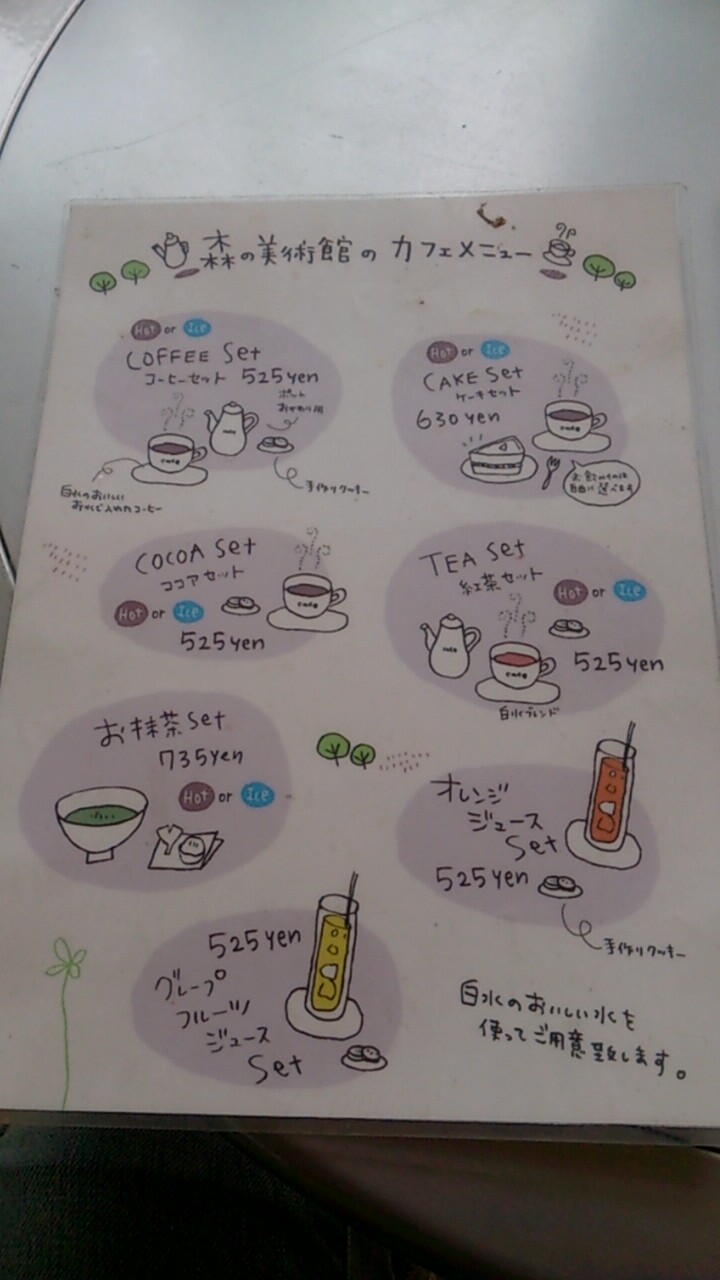 森の美術館のカフェメニュー
Hot or Ice
COFFEE Set
コーヒーセット 525yen
ポット
おかわり用
cafe
手作りクッキー
白水のおいしい
おみずで入れたコーヒー
Hot or Ice
CAKE Set
ケーキセット
630yen
cafe
お飲みものは
自由に選べます
COCOA Set
ココアセット
Hot or Ice
525yen
cafe
TEA Set
紅茶セット
Hot or Ice
cafe
525yen
白水ブレンド
お抹茶 Set
735yen
Hot or Ice
オレンジ
ジュース
Set
525yen
手作りクッキー
525yen
グレープ
フルーツ
ジュース
Set
白水のおいしい水を
使ってご用意致します。